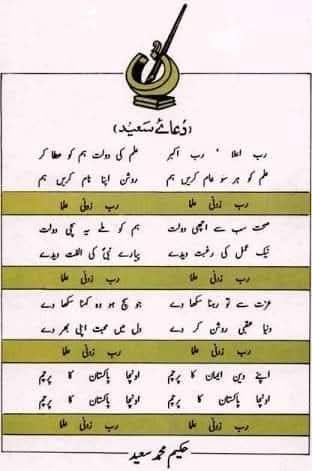 (دُعائے سَعید)
رب اعلا، رب اکبر علم کی دولت ہم کو عطا کر
علم کو ہر سو عام کریں ہم روشن اپنا نام کریں ہم
رب زدنی علما رب زدنی علما
صحت سب سے اچھی دولت ہم کو ملے یہ سچی دولت
نیک عمل کی رغبت دیدے پیارے نبیؐ کی الفت دیدے
رب زدنی علما رب زدنی علما
عزت سے تو رہنا سکھا دے جو سچ ہو وہ کہنا سکھا دے
دنیا عقبیٰ روشن کر دے دل میں محبت اپنی بھر دے
رب زدنی علما رب زدنی علما
اپنے دین ایمان کا پرچم اونچا پاکستان کا پرچم
اونچا پاکستان کا پرچم اونچا پاکستان کا پرچم
رب زدنی علما رب زدنی علما
حکیم محمد سعید